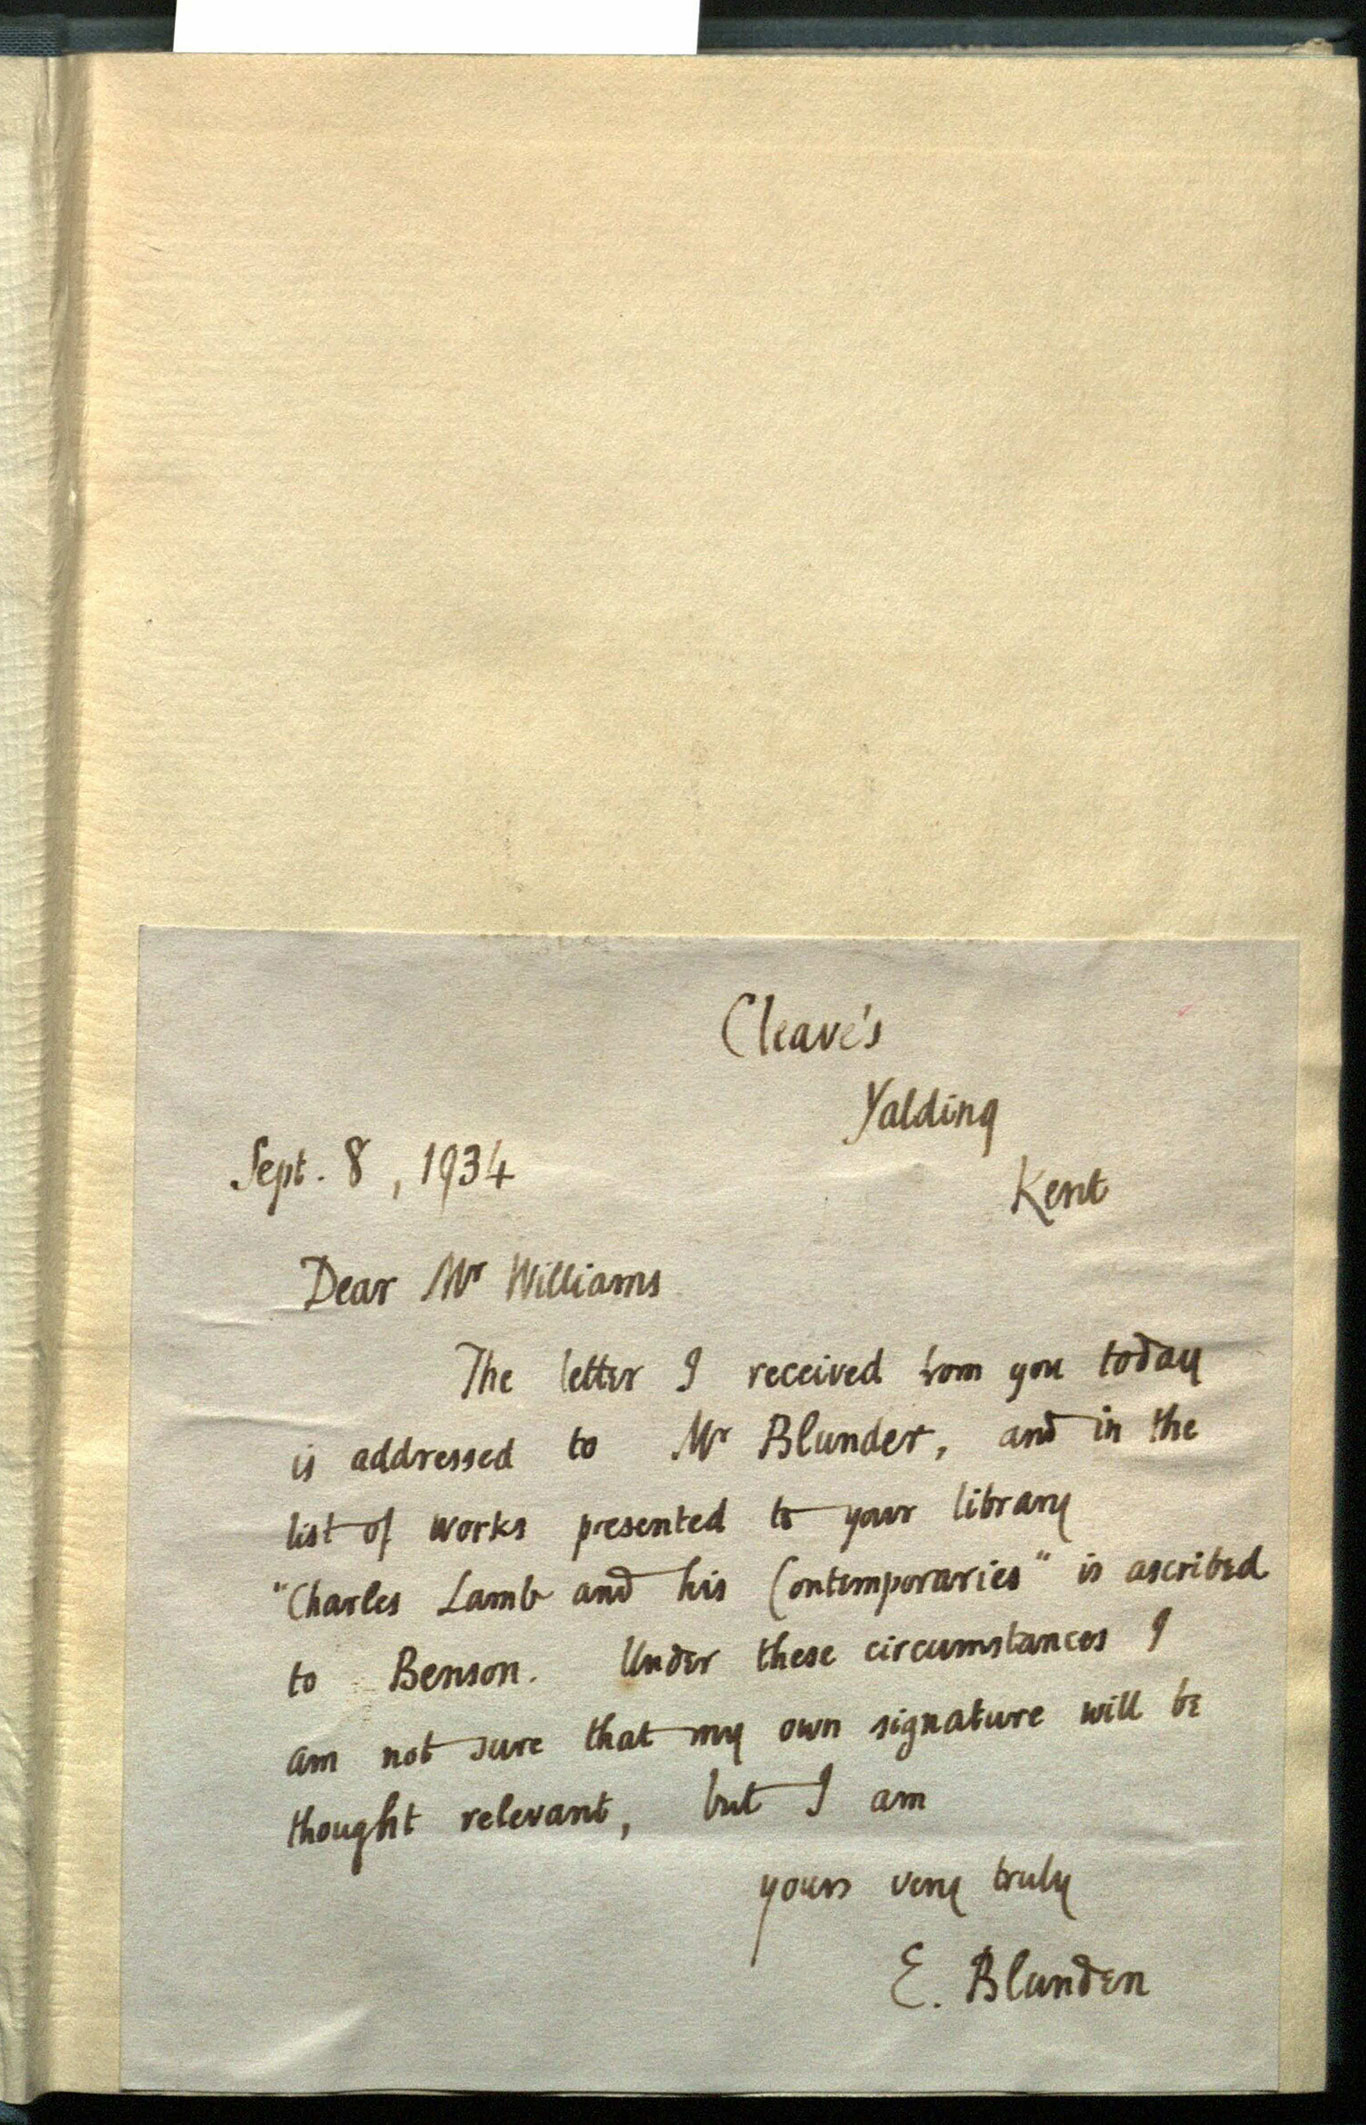 Cleave's
Yalding
Kent
Sept. 8, 1934
Dear Mr Williams
The letter I received from you today
is addressed to Mr Blunder, and in the
list of works presented to your library
"Charles Lamb and his Contemporaries" is ascribed
to Benson. Under these circumstances I
am not sure that my own signature will be
thought relevant, but I am
yours very truly
E. Blunden